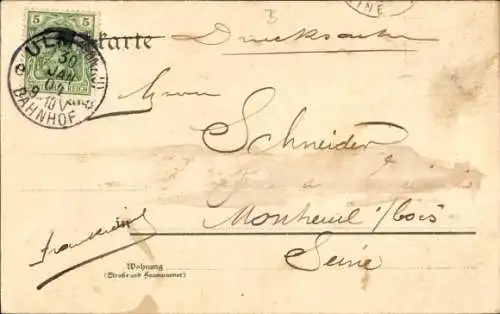 5 5
ULM
30
JAN
04
9-10 V
BAHNHOF
karte
Drucksache
Herrn
Schneider
in Montreuil s/bois
Frankreich
Seine
Wohnung
(Straße und Hausnummer)